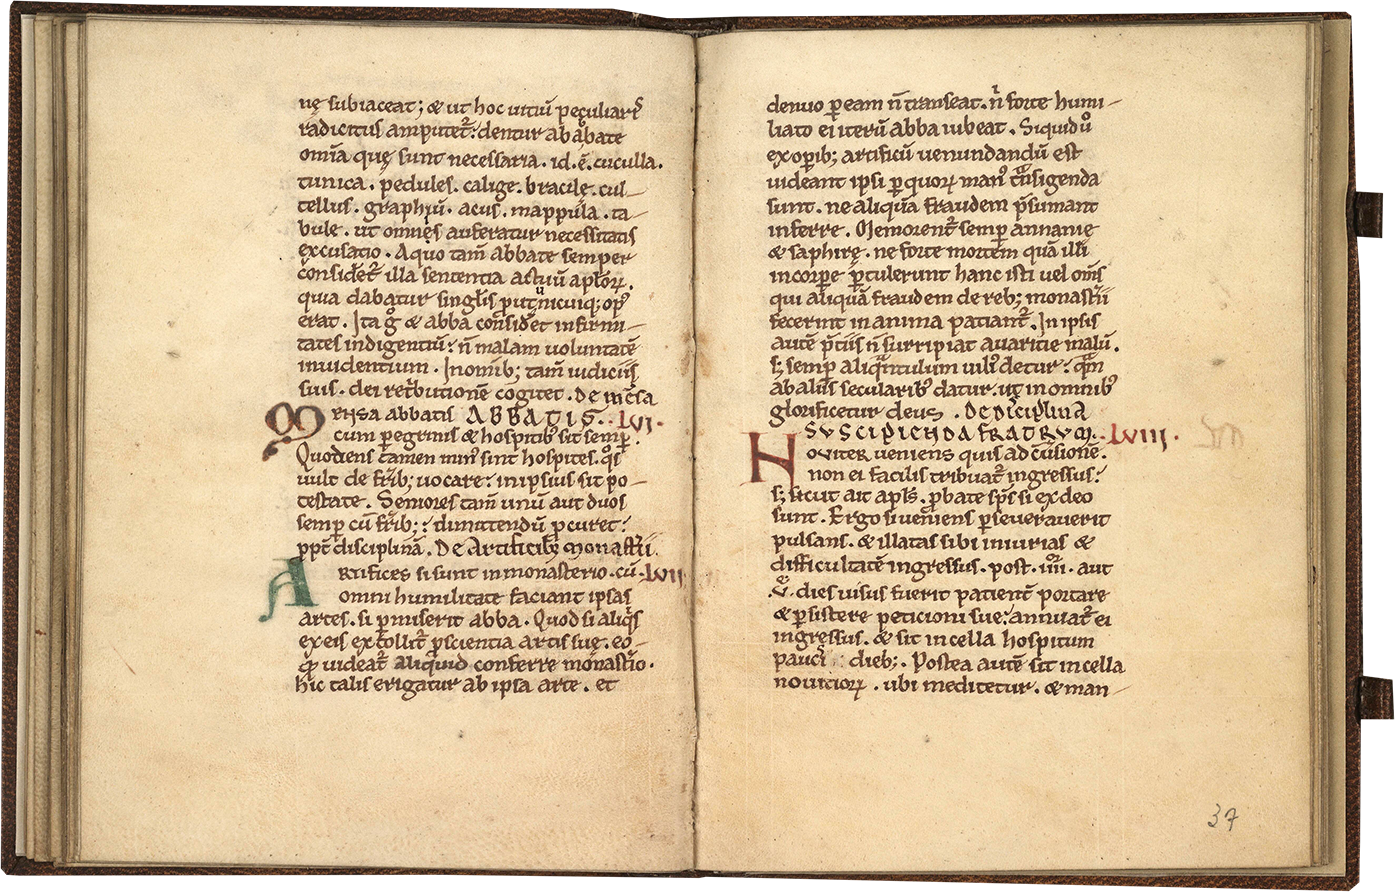 nę subiaceat; & ut hoc uitiū peculiarę
radicitus amputet᷑: dentur ab abbate
om̄ia quę sunt necessaria. id. ē. cuculla.
tunica. pedules. calige. bracile. cul-
tellus. graphiū. acus. mappula. ta-
bule. ut omnes auferatur necessitatis
excusatio. A quo tam̄ abbate semper
consideret᷑ illa sententia actuū aptoꝝ.
quia dabatur singlis put cuiq; op᷒
erat. Ita g° & abba consideret infirmi-
tates indigentiū: n̄ malam uoluntatē
inuidentium. In omib; tam̄ iudiciis
suis. dei retbutionē cogitet. De mēsa
Mensa abbatis ABBATIS. LVI.
cum peregrinis & hospitib᷒ sit semꝑ.
Quotiens tamen min᷒ sint hospites. qͦs
uult de frīb; uocare: in ipsius sit po-
testate. Seniores tam̄ unū aut duos
semꝑ cū frīb;: dimittendū ꝓcuret:
ppt̄ disciplinā. De Artificib; monastīi.
Artifices si sunt in monasterio. cū LVII
omni humilitate faciant ipsas
artes. si ꝑmiserit abba. Quod si aliqͥs
ex eis extollit᷑ ꝑ scientia artis suę. eo-
qͩ uideat᷑ aliquid conferre monastio.
hic talis erigatur ab ipsa arte. et
denuo ꝑ eam n̄ transeat. nͥ forte humi-
liato ei iterū abba iubeat. Si quid uͦ
ex opib; artificū uenundandū est
uideant ipsi ꝑ quoꝝ man᷒ tͣnsigenda
sunt. ne aliquā fraudem p̄sumant
inferre. Memorent᷑ semꝑ annanię
& saphirę. ne forte mortem quā illi
in corpore ꝑtulerunt hanc isti uel om̄s
qui aliquā fraudem de reb; monastīi
fecerint in anima patiant᷑. In ipsis
autē p̄tiis n̄ surripiat auaritie malū.
s; semꝑ aliqͣntulum uili᷒ detur: qͣm
ab aliis secularib᷒ datur. ut in omnib᷒
glorificetur deus. De disciplina
SUSCIPIENDA FRATRUM. LVIII.
Nouiter ueniens quis ad cūsionē.
non ei facilis tribuat᷑ ingressus:
s; sicut ait apls. ꝓbate sps si ex deo
sunt. Ergo si ueniens ꝑseuerauerit
pulsans. & illatas sibi iniurias &
difficultatē ingressus. post. iiii. aut
.v. dies uisus fuerit patient᷑ portare
& ꝑsistere peticioni sue: annuat᷑ ei
ingressus. & sit in cella hospitum
paucͥ dieb;. Postea autē sit in cella
nouitioꝝ. ubi meditetur. & man-
37